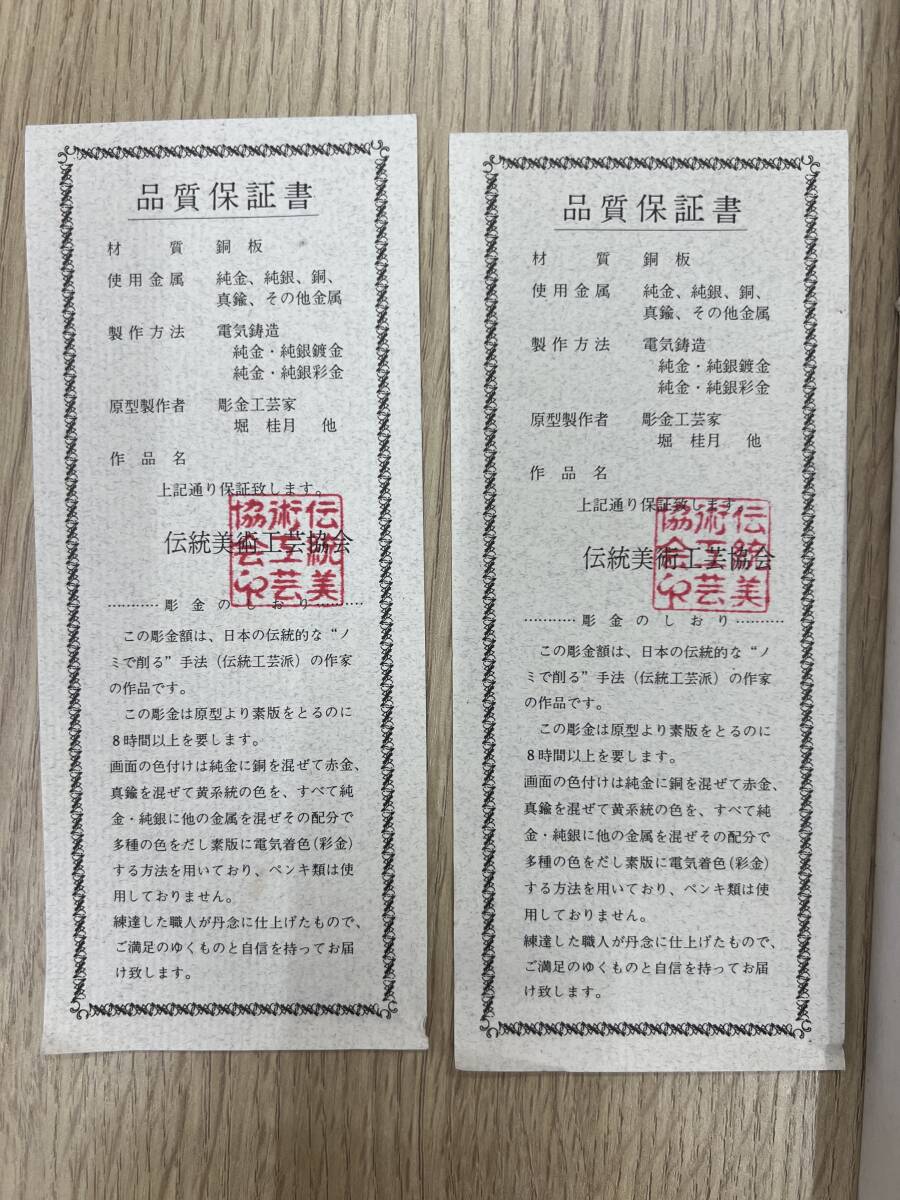 品質保証書
材 質 銅 板
使用金属 純金、純銀、銅、
真鍮、その他金属
製作方法 電気鋳造
純金・純銀鍍金
純金・純銀彩金
原型製作者 彫金工芸家
堀 桂月 他
作 品 名
上記通り保証致します。
伝統美術工芸協会
伝統美術工芸協会印
…………彫 金 の し お り…………
この彫金額は、日本の伝統的な“ノ
ミで削る”手法（伝統工芸派）の作家
の作品です。
この彫金は原型より素版をとるのに
8時間以上を要します。
画面の色付けは純金に銅を混ぜて赤金、
真鍮を混ぜて黄系統の色を、すべて純
金・純銀に他の金属を混ぜその配分で
多種の色をだし素版に電気着色(彩金)
する方法を用いており、ペンキ類は使
用しておりません。
練達した職人が丹念に仕上げたもので、
ご満足のゆくものと自信を持ってお届
け致します。
品質保証書
材 質 銅 板
使用金属 純金、純銀、銅、
真鍮、その他金属
製作方法 電気鋳造
純金・純銀鍍金
純金・純銀彩金
原型製作者 彫金工芸家
堀 桂月 他
作 品 名
上記通り保証致します。
伝統美術工芸協会
伝統美術工芸協会印
…………彫 金 の し お り…………
この彫金額は、日本の伝統的な“ノ
ミで削る”手法（伝統工芸派）の作家
の作品です。
この彫金は原型より素版をとるのに
8時間以上を要します。
画面の色付けは純金に銅を混ぜて赤金、
真鍮を混ぜて黄系統の色を、すべて純
金・純銀に他の金属を混ぜその配分で
多種の色をだし素版に電気着色(彩金)
する方法を用いており、ペンキ類は使
用しておりません。
練達した職人が丹念に仕上げたもので、
ご満足のゆくものと自信を持ってお届
け致します。